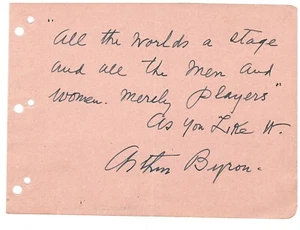 "All the worlds a stage
and all the men and
women. merely players"
As You Like It.
Arthur Byron.